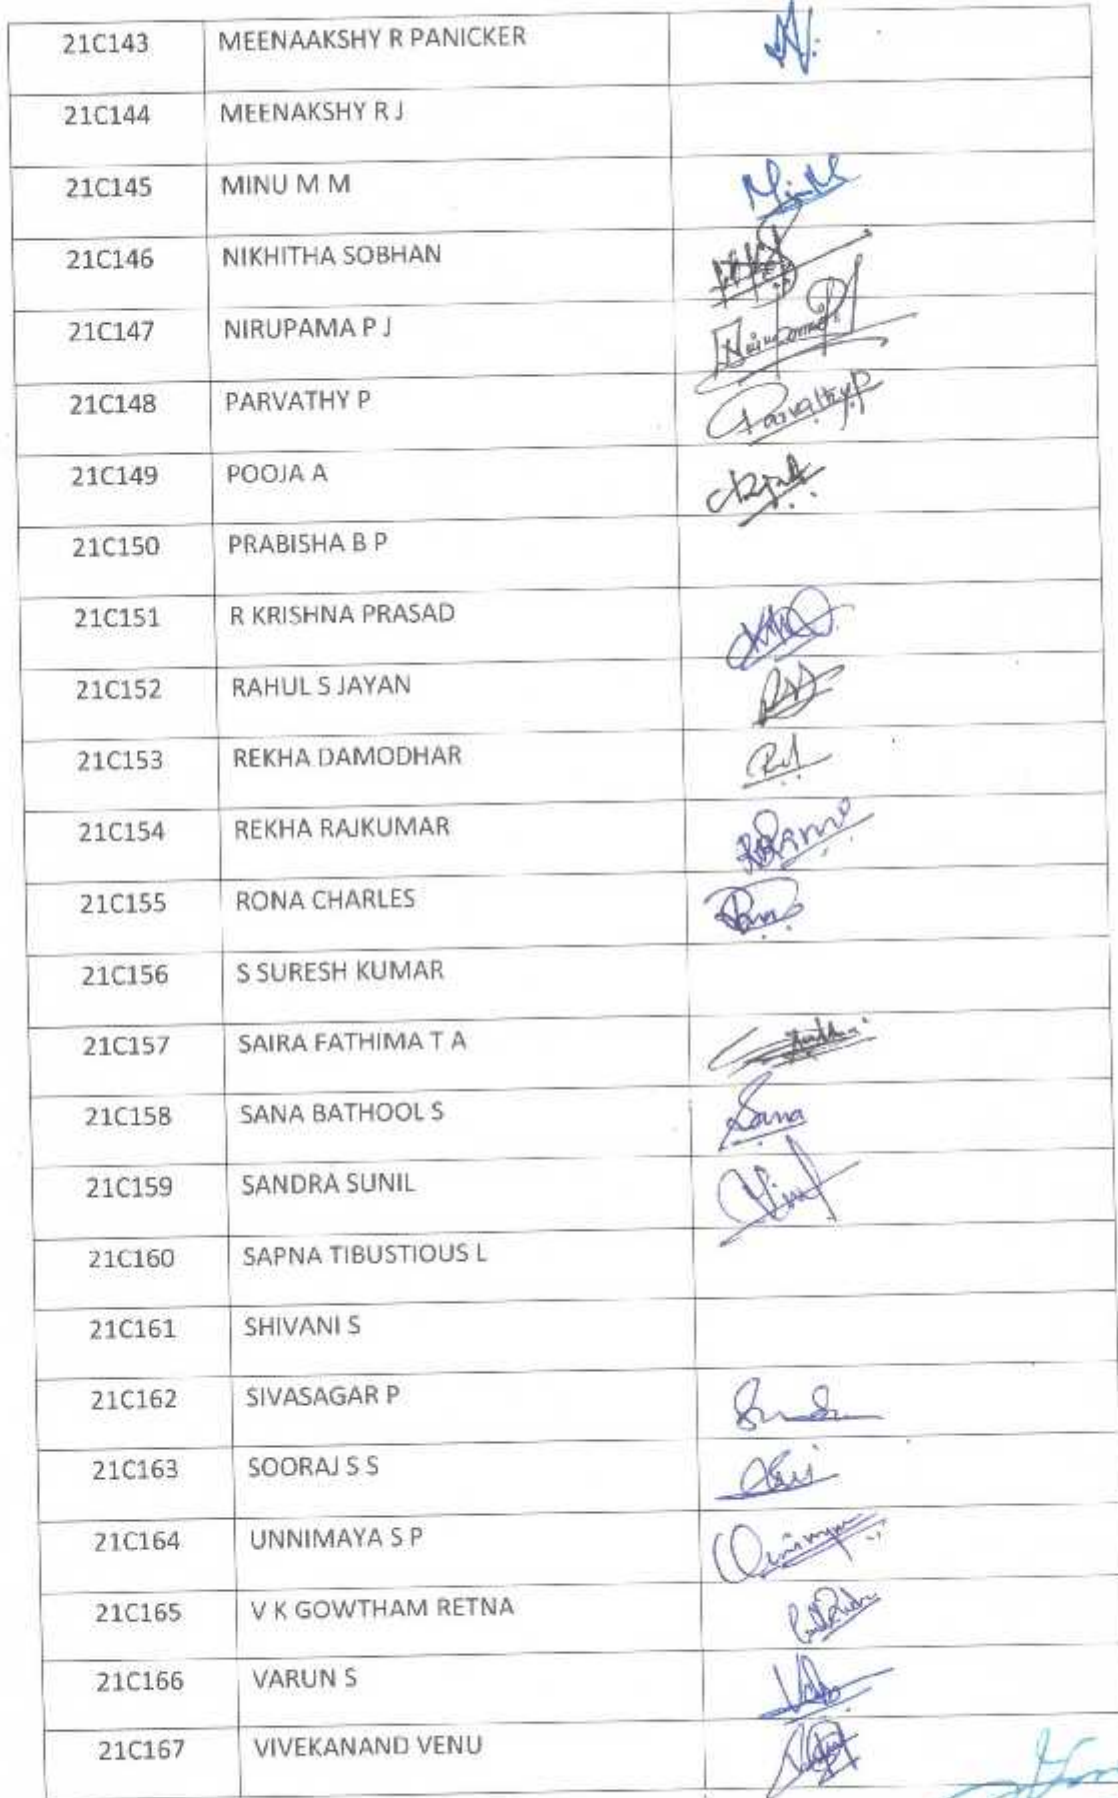 21C143 MEENAAKSHY R PANICKER
21C144 MEENAKSHY R J
21C145 MINU M M
21C146 NIKHITHA SOBHAN
21C147 NIRUPAMA P J
21C148 PARVATHY P Parvathy P
21C149 POOJA A
21C150 PRABISHA B P
21C151 R KRISHNA PRASAD
21C152 RAHUL S JAYAN
21C153 REKHA DAMODHAR
21C154 REKHA RAJKUMAR
21C155 RONA CHARLES
21C156 S SURESH KUMAR
21C157 SAIRA FATHIMA T A
21C158 SANA BATHOOL S Sana
21C159 SANDRA SUNIL
21C160 SAPNA TIBUSTIOUS L
21C161 SHIVANI S
21C162 SIVASAGAR P
21C163 SOORAJ S S
21C164 UNNIMAYA S P
21C165 V K GOWTHAM RETNA
21C166 VARUN S
21C167 VIVEKANAND VENU